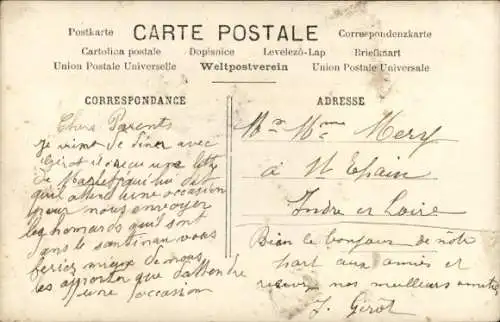 Postkarte CARTE POSTALE Correspondenzkarte
Cartolina postale Dopisnice Levelező-Lap Briefkaart
Union Postale Universelle Weltpostverein Union Postale Universale
CORRESPONDANCE
Chers Parents
Je vient de diner avec
Girot il a reçu une lettre
de qui lui dit
qu'il attend une occasion
pour nous envoyer
les homards qu'il sont
dans le vous
feriez mieux de nous
les apporter que d'attendre
une occasion
ADRESSE
Mr Mme Mery
à St Epain
Indre et Loire
Bien le bonjour de notre
part aux amies et
recevez nos meilleurs amitiés
J. Girot